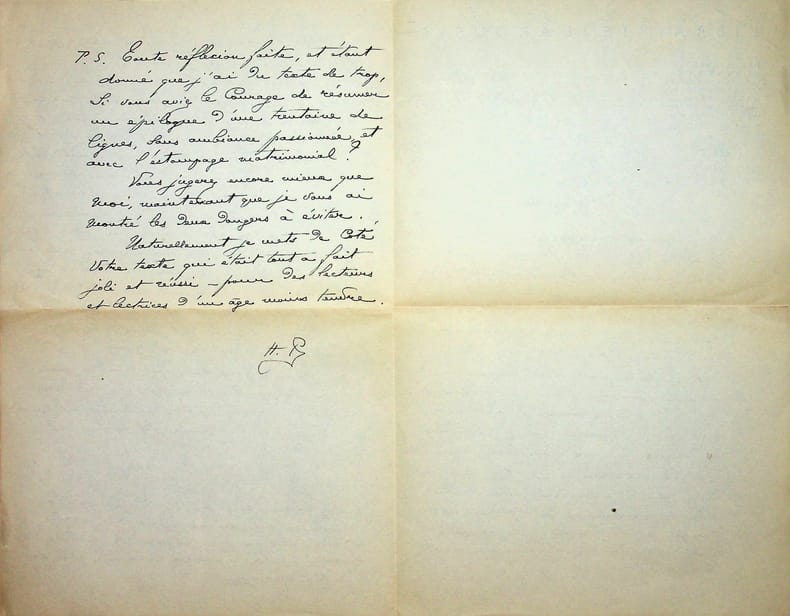 P.S. Toute réflexion faite, et étant
donné que j'ai du texte de trop,
si vous aviez le Courage de résumer
un épilogue d'une trentaine de
lignes, sans ambiance passionnée, et
avec l'estompage matrimonial ?
Vous jugerez encore mieux que
moi, maintenant que je vous ai
montré les deux dangers à éviter.
Naturellement je mets de Coté
votre texte qui était tout à fait
joli et réussi — pour des lecteurs
et lectrices d'un âge moins tendre.
H. P.